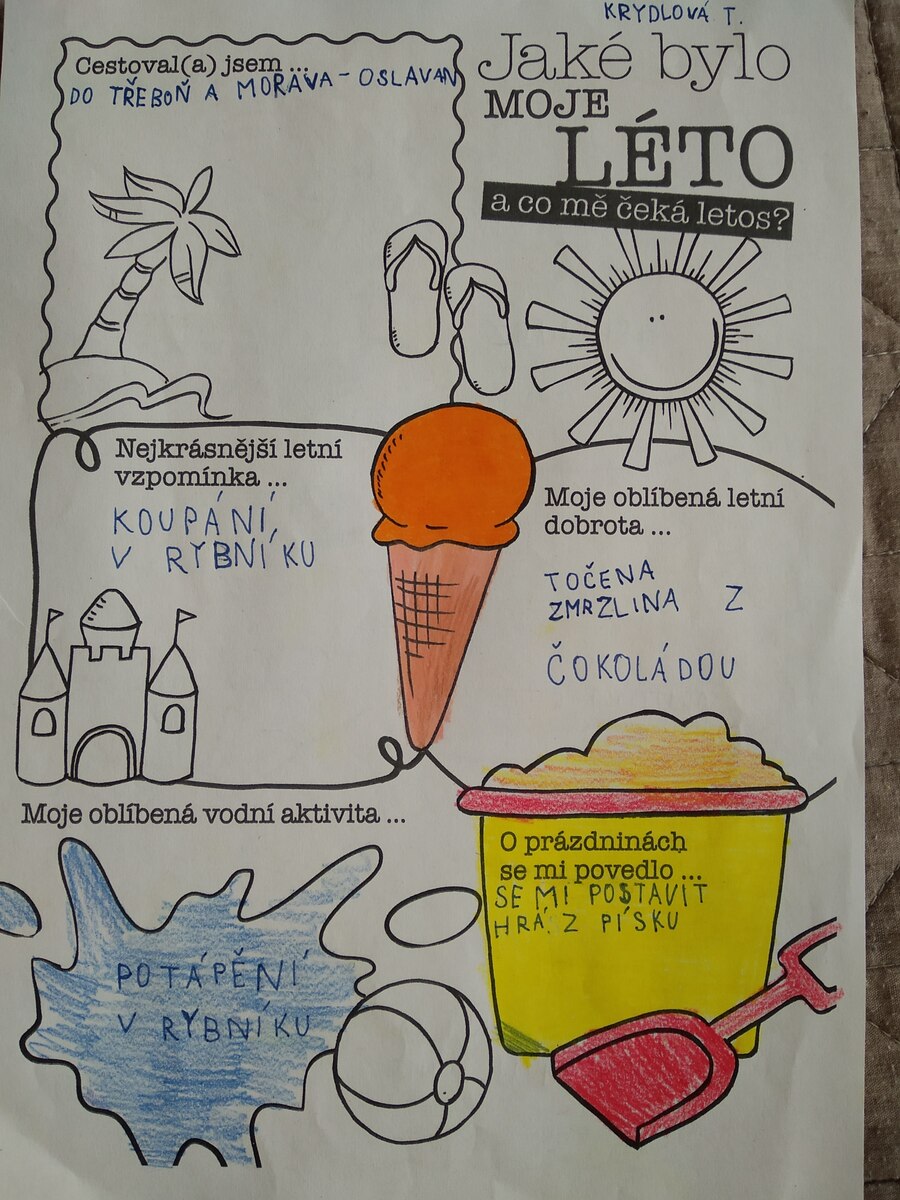 KRYDLOVÁ T.
Jaké bylo
MOJE
LÉTO
a co mě čeká letos?
Cestoval(a) jsem ...
DO TŘEBOŇ A MORAVA - OSLAVAN
Nejkrásnější letní
vzpomínka ...
KOUPÁNÍ
V RYBNÍKU
Moje oblíbená letní
dobrota ...
TOČENA
ZMRZLINA Z
ČOKOLÁDOU
Moje oblíbená vodní aktivita ...
POTÁPĚNÍ
V RYBNÍKU
O prázdninách
se mi povedlo ...
SE MI POSTAVIT
HRÁ. Z PÍSKU